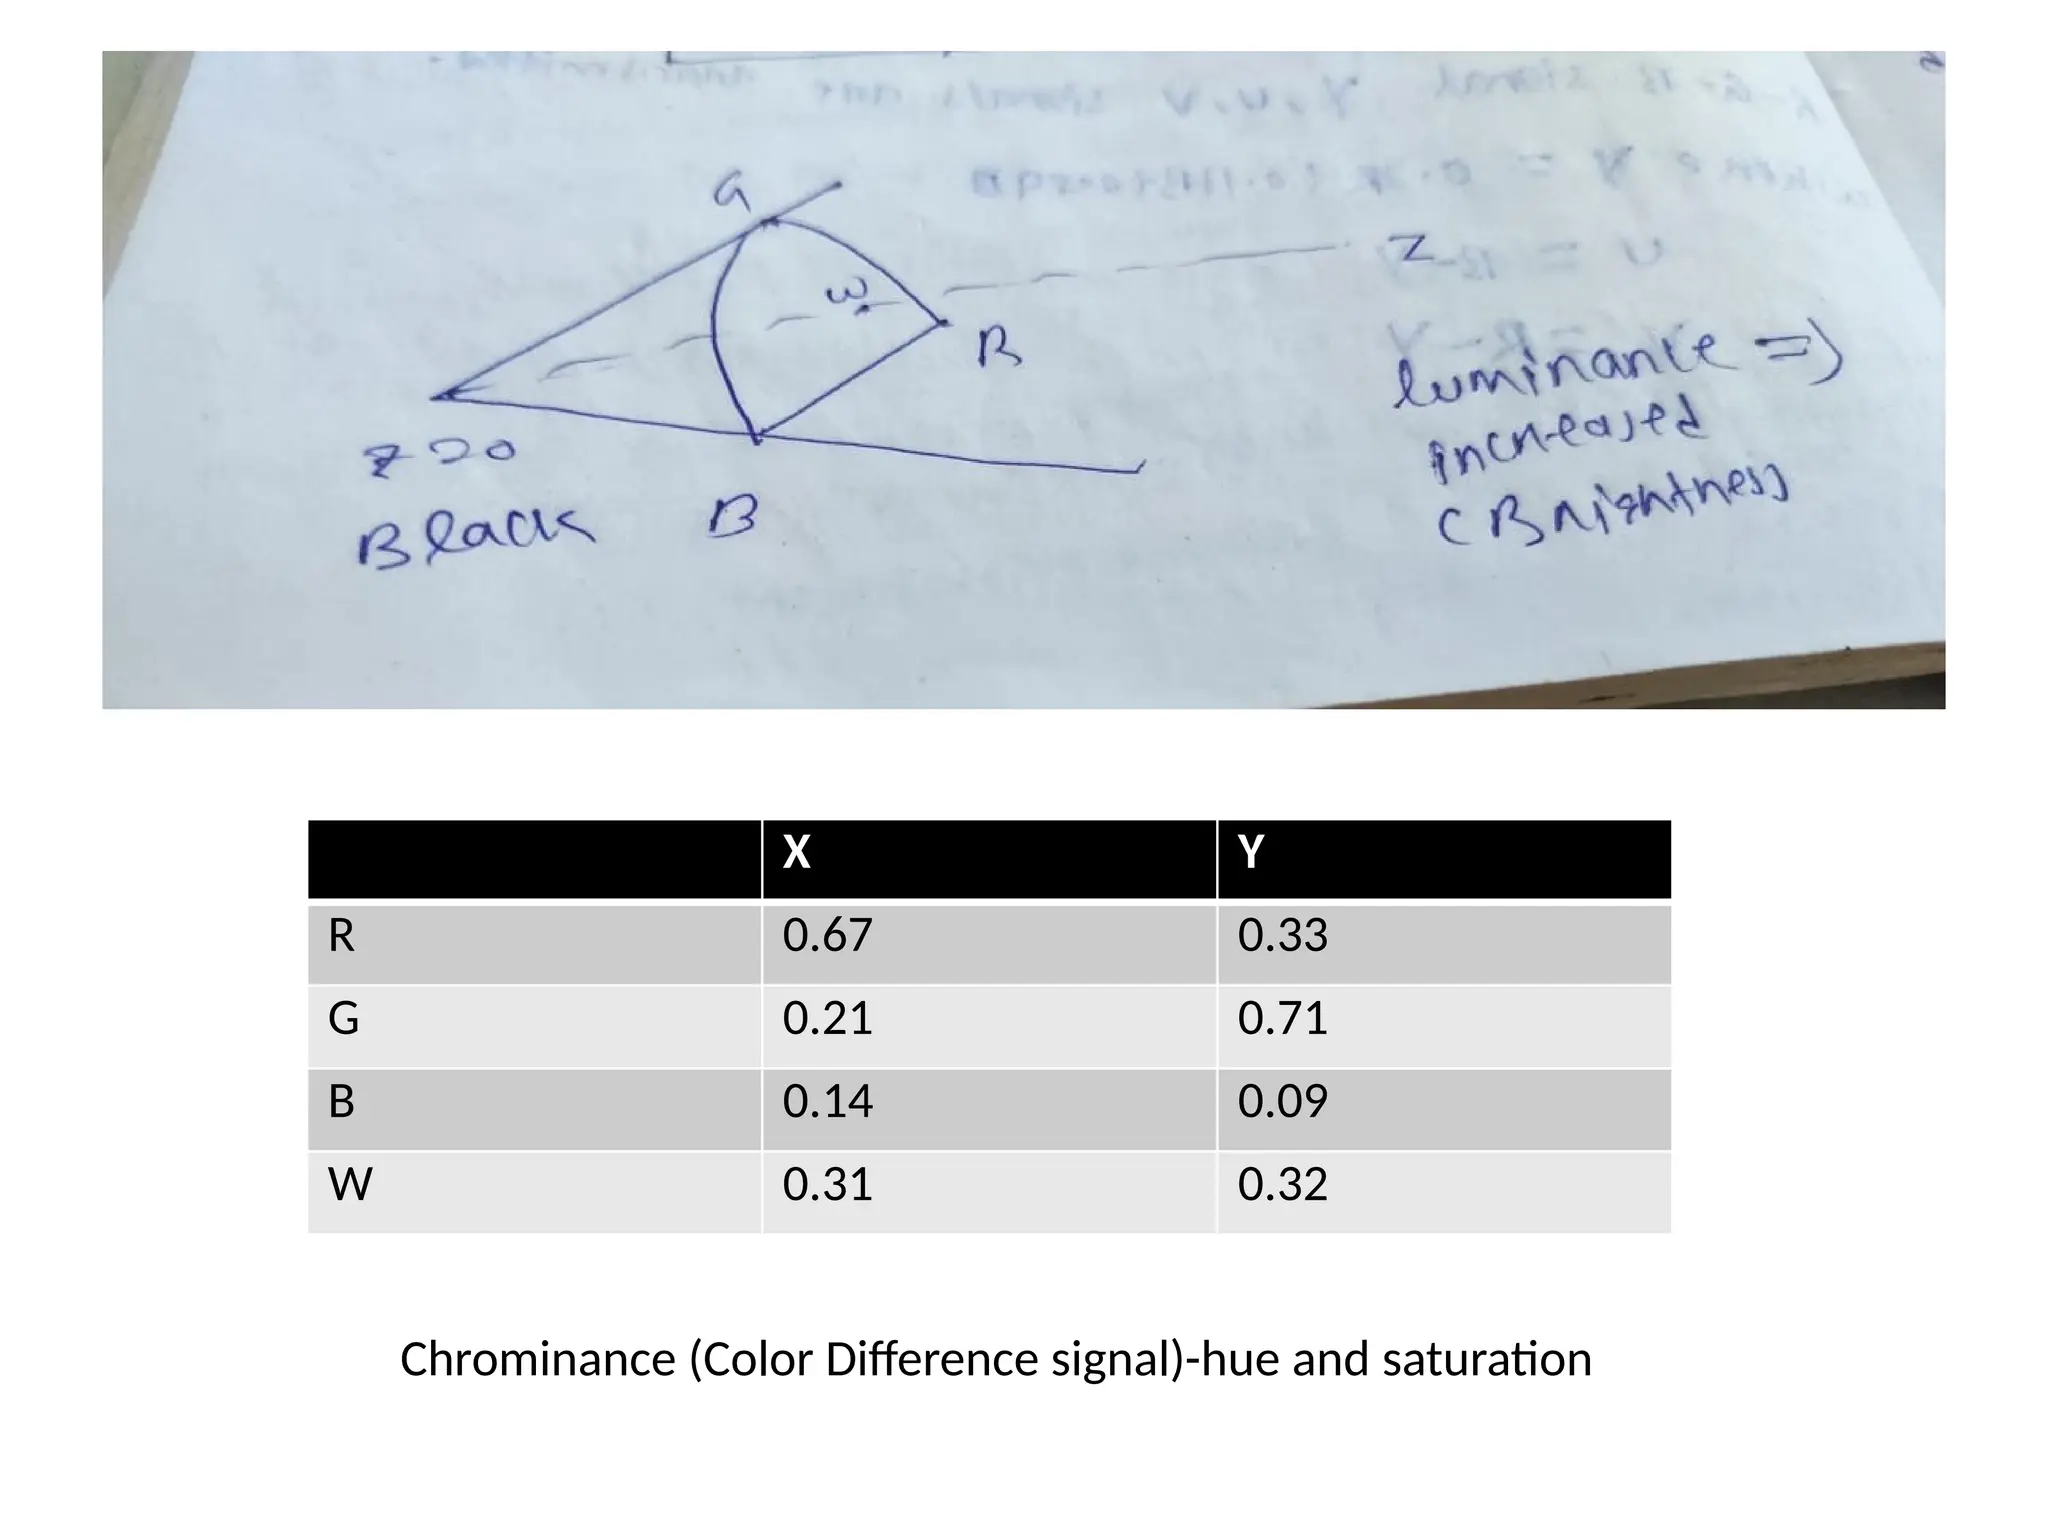 G
W
Z
R
luminance =>
increased
(Brightness
Z=0
Black
B
X Y
R 0.67 0.33
G 0.21 0.71
B 0.14 0.09
W 0.31 0.32
Chrominance (Color Difference signal)-hue and saturation